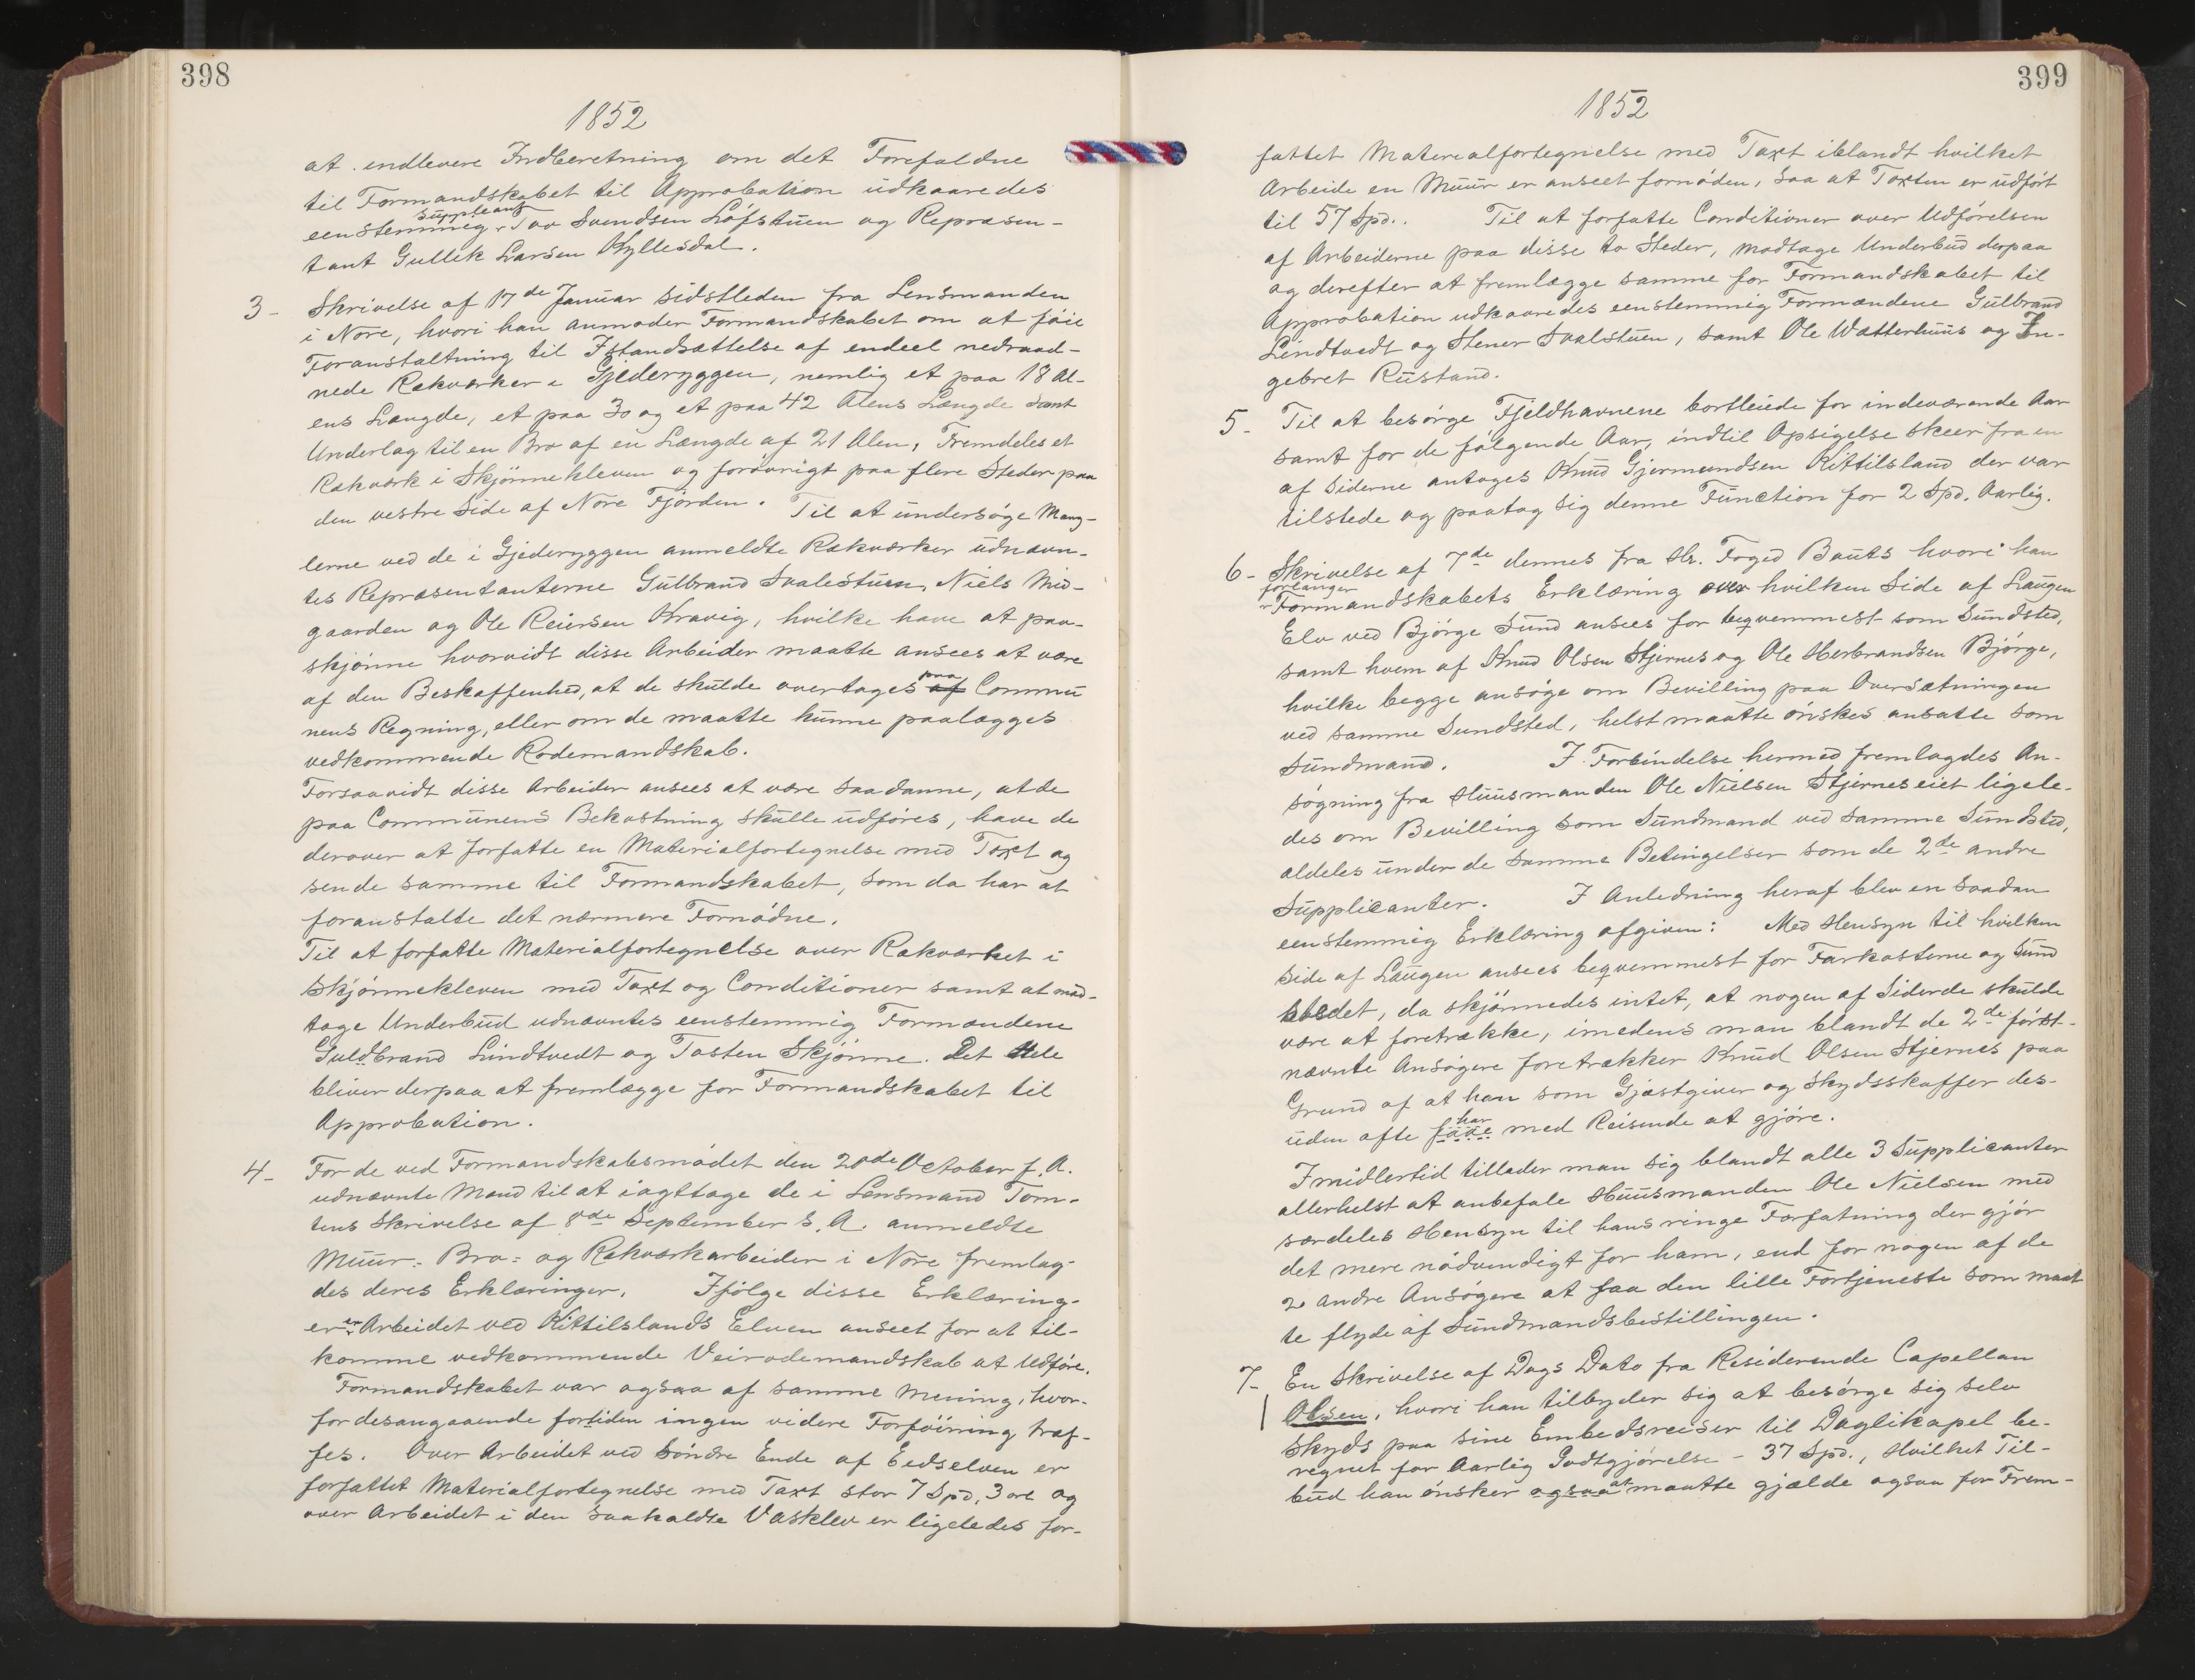 398
1852
at indlevere Indberetning om det Forefaldne
til Formandskabet til Approbation udkaaredes
suppleant
eenstemmig Tov Svendsen Løfstuen og Repræsen-
tant Gullik Larsen Kyllesdal.
3- Skrivelse af 17de Januar sidstleden fra Lensmanden
i Nore, hvori han anmoder Formandskabet om at føie
Foranstaltning til Istandsættelse af endeel nedraad-
nede Rækværker i Gjederyggen, nemlig et paa 18 Al-
ens Længde, et paa 30 og et paa 42 Alens Længde samt
Underlag til en Bro af en Længde af 21 Alen, Fremdeles et
Rækværk i Skjønnekleven og forøvrigt paa flere Steder paa
den vestre Side af Nore Fjorden. Til at undersøge Mang-
lerne ved de i Gjederyggen anmeldte Rækværker udnævn-
tes Repræsentanterne Gulbrand Svalestuen, Niels Mid-
gaarden og Ole Reiersen Kravig, hvilke have at paa-
skjønne hvorvidt disse Arbeider maatte ansees at være
paa
af den Beskaffenhed, at de skulde overtages af Commu
nens Regning, eller om de maatte kunne paalægges
vedkommende Rodemandskab.
Forsaavidt disse Arbeider ansees at være saadanne, at de
paa Communens Bekostning skulle udføres, have de
derover at forfatte en Materialfortegnelse med Taxt og
sende samme til Formandskabet, som da har at
foranstalte det nærmere Fornødne.
Til at forfatte Materialfortegnelse over Rækværket i
Skjønnekleven med Taxt og Conditioner samt at mod-
tage Underbud udnævntes eenstemmig Formændene
Guldbrand Lindtvedt og Tosten Skjønne. Det Hele
bliver derpaa at fremlægge for Formandskabet til
Approbation.
4- For de ved Formandskabsmødet den 20de October f. A.
udnævnte Mænd til at iagttage de i Lensmand Tom-
tens Skrivelse af 8de September s. A. anmeldte
Muur- Bro- og Rækværkarbeider i Nore fremlag-
des deres Erklæringer. Ifølge disse Erklæring-
er er Arbeidet ved Kittilslands Elven anseet for at til-
komme vedkommende Veirodemandskab at Udføre.
Formandskabet var ogsaa af samme Mening, hvor-
for desangaaende fortiden ingen videre Forføining traf-
fes. Over Arbeidet ved Søndre Ende af Eidselven er
forfattet Materialfortegnelse med Taxt stor 7 Spd, 3 ort og
over Arbeidet i den saakaldte Vasklev er ligeledes for-
399
1852
fattet Materialfortegnelse med Taxt iblandt hvilket
Arbeide en Muur er anseet fornøden, saa at Taxten er udført
til 57 Spd.. Til at forfatte Conditioner over Udførelsen
af Arbeiderne paa disse to Steder, modtage Underbud derpaa
og derefter at fremlægge samme for Formandskabet til
Approbation udkaaredes eenstemmig Formændene Gulbrand
Lindtvedt og Stener Svalstuen, samt Ole Watterhuus og In-
gebret Rustand.
5- Til at besørge Fjeldhavnene bortleiede for indeværende Aar
samt for de følgende Aar, indtil Opsigelse skeer fra en
af Siderne antoges Knud Gjermundsen Kittilsland der var
tilstede og paatog sig denne Function for 2 Spd. Aarlig.
6- Skrivelse af 7de dennes fra Hr. Foged Bauts hvori han
forlanger
Formandskabets Erklæring over hvilken Side af Laugen
Elv ved Bjørge Sund ansees for beqvemmest som Sundsted,
samt hvem af Knud Olsen Stjernes og Ole Herbrandsen Bjørge,
hvilke begge ansøge om Bevilling paa Oversætningen
ved samme Sundsted, helst maatte ønskes ansatte som
Sundmand. I Forbindelse hermed fremlagdes An-
søgning fra Huusmanden Ole Nielsen Stjerneseiet ligele-
des om Bevilling som Sundmand ved samme Sundsted,
aldeles under de samme Betingelser som de 2de andre
Supplicanter. I Anledning heraf blev en saadan
eenstemmig Erklæring afgiven: Med Hensyn til hvilken
Side af Laugen ansees beqvemmest for Farkosterne og Sund
stedet, da skjønnedes intet, at nogen af Siderde skulde
være at foretrække, imedens man blandt de 2de først-
nævnte Ansøgere foretrækker Knud Olsen Stjernes paa
Grund af at han som Gjæstgiver og Skydsskaffer des-
har
uden ofte faae med Reisende at gjøre.
Imidlertid tillader man sig blandt alle 3 Supplicanter
allerhelst at anbefale Huusmanden Ole Nielsen med
særdeles Hensyn til hans ringe Forfatning der gjør
det mere nødvendigt for ham, end for nogen af de
2 andre Ansøgere at faa den lille Fortjeneste som maat
te flyde af Sundmandsbestillingen.
7- En Skrivelse af Dags Dato fra Residerende Capellan
Olsen, hvori han tilbyder sig at besørge sig selv
Skyds paa sine Embedsreiser til Daglikapel be-
regnet for Aarlig Godtgjørelse - 37 Spd., Hvilket Til-
bud han ønsker ogsaa at maatte gjælde ogsaa for Frem-